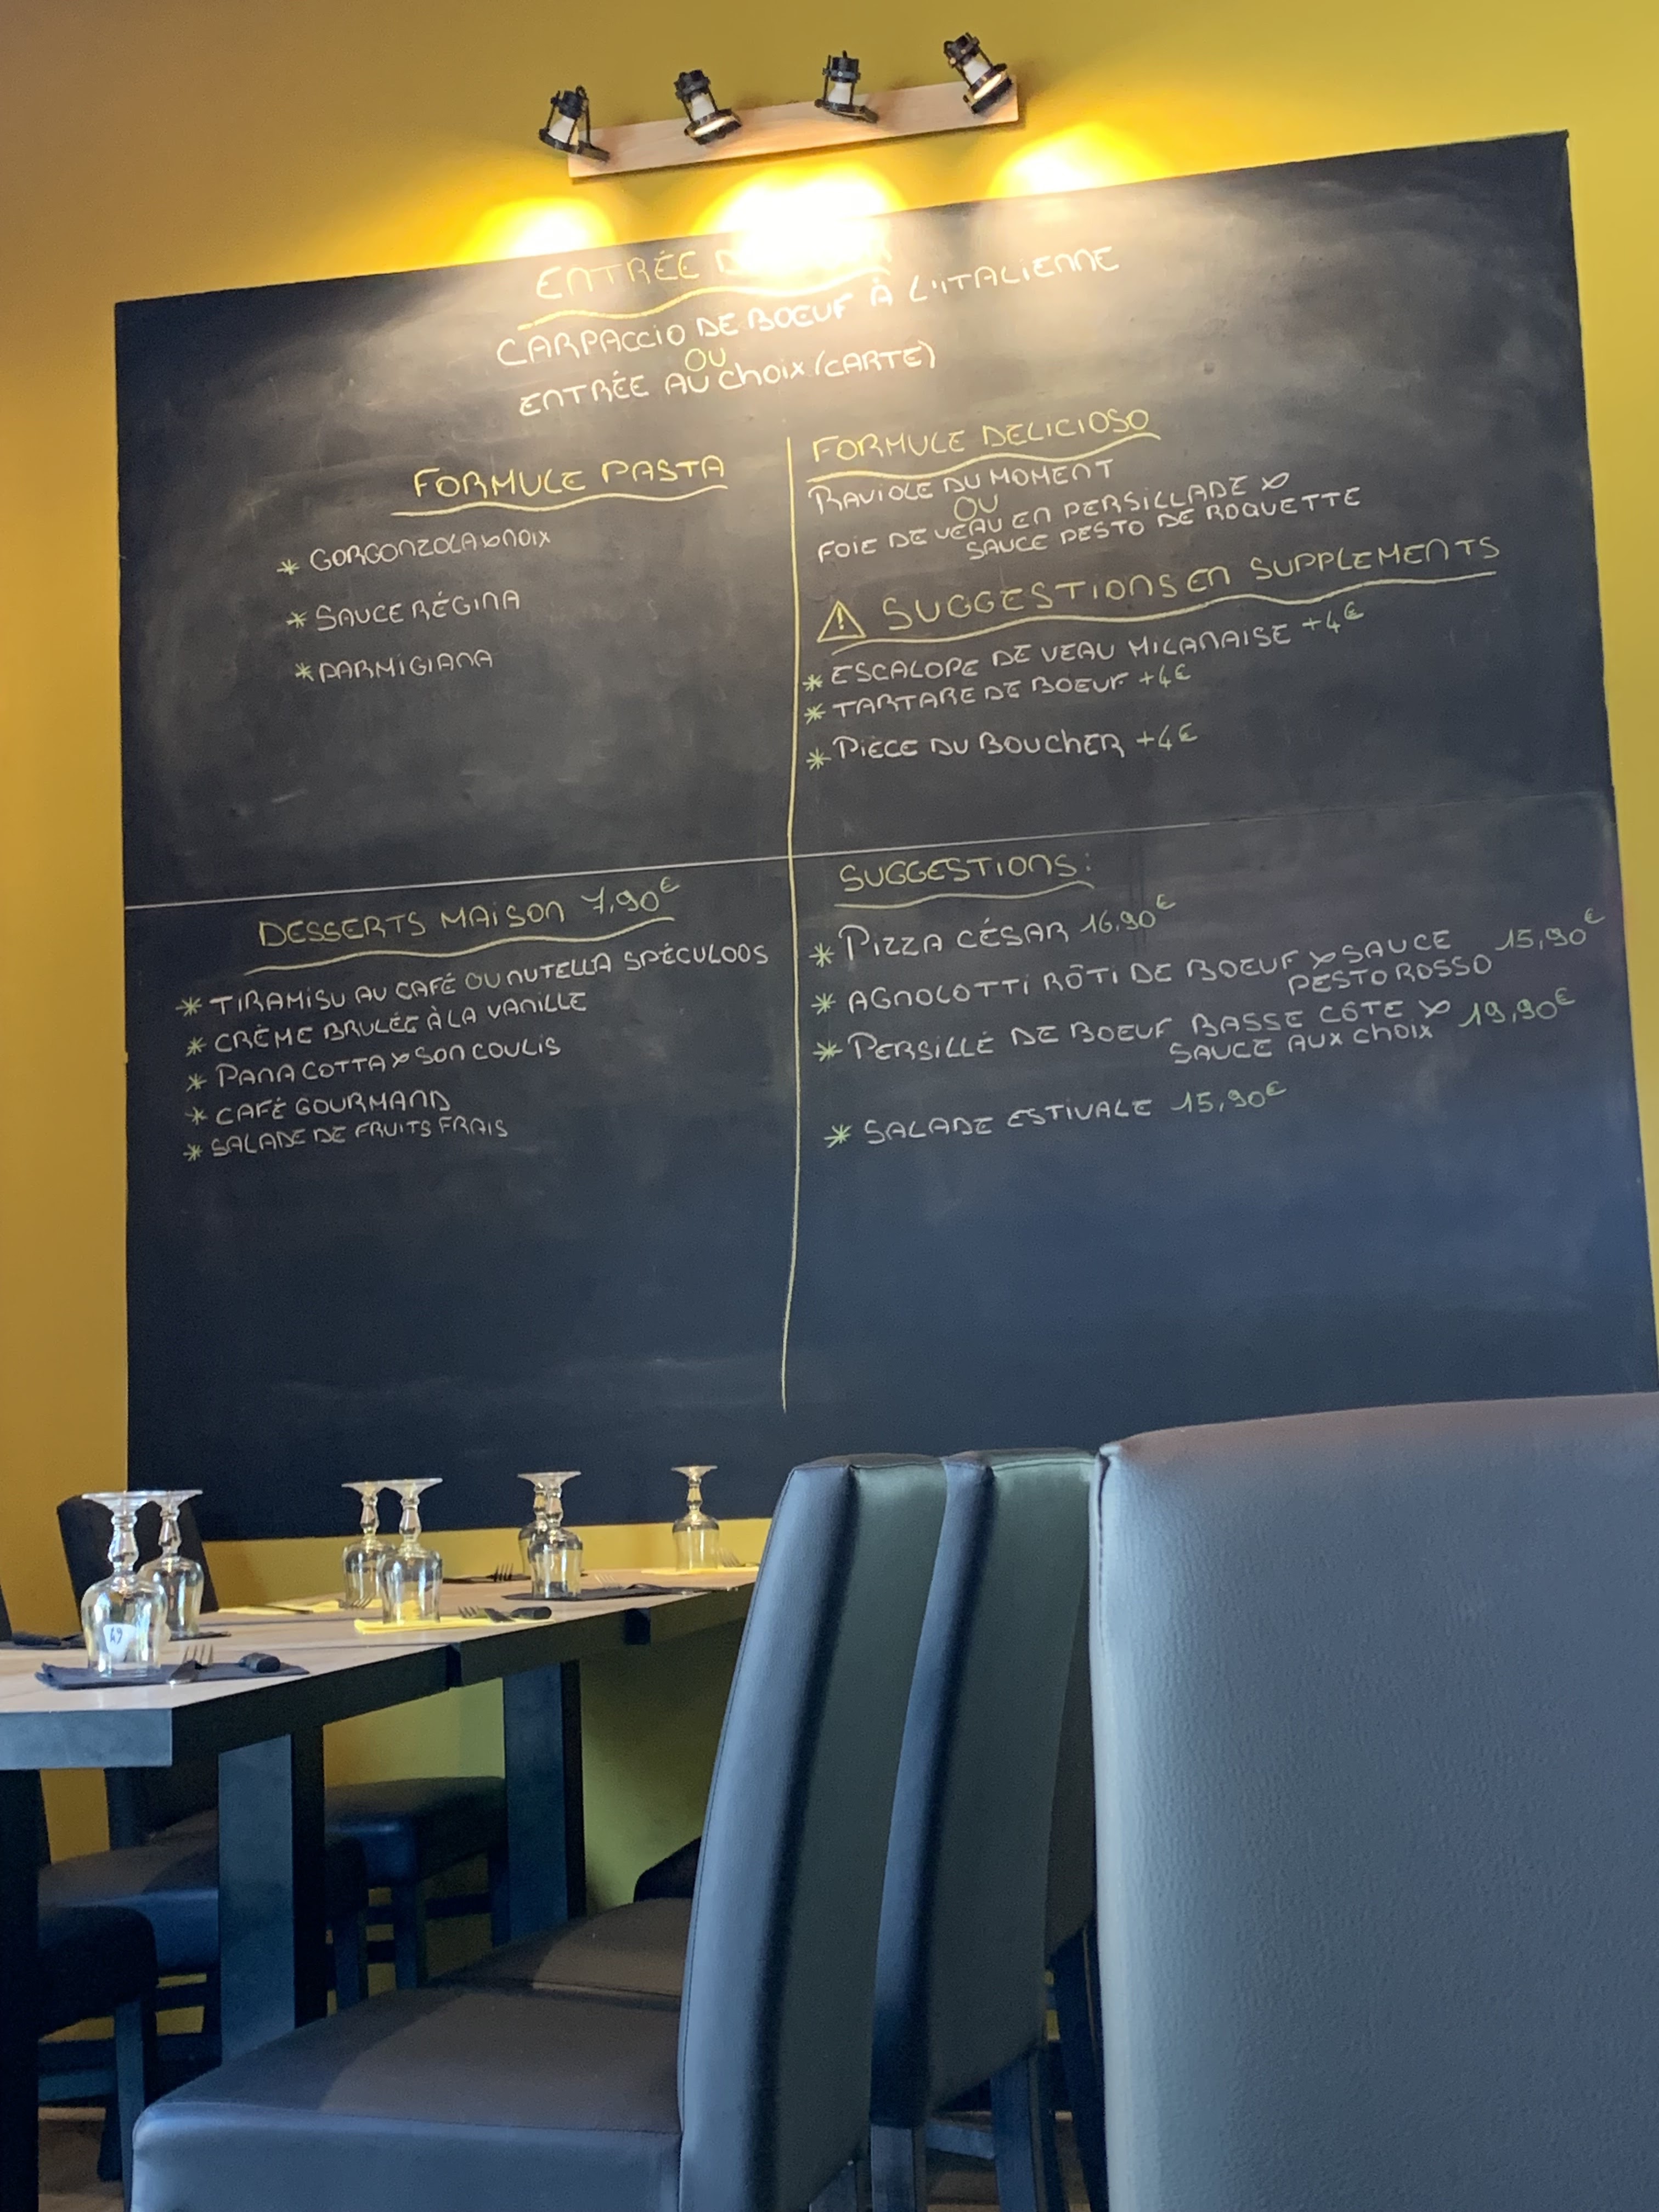 ENTRÉE
CARPACCIO DE BOEUF À L'ITALIENNE
OU
ENTRÉE AU choix (CARTE)
FORMULE PASTA
* GORGONZOLA & NOIX
* SAUCE RÉGINA
* PARMIGIANA
FORMULE DELICIOSO
RAVIOLE DU MOMENT
OU
FOIE DE VEAU EN PERSILLADE &
SAUCE PESTO DE ROQUETTE
⚠ SUGGESTIONS EN SUPPLEMENTS
* ESCALOPE DE VEAU MILANAISE +4€
* TARTARE DE BOEUF +4€
* PIECE DU BOUCHER +4€
DESSERTS MAISON 7,90€
* TIRAMISU AU CAFÉ OU NUTELLA SPÉCULOOS
* CRÈME BRULÉE À LA VANILLE
* PANA COTTA & SON COULIS
* CAFÉ GOURMAND
* SALADE DE FRUITS FRAIS
SUGGESTIONS:
* PIZZA CÉSAR 16,90€
* AGNOLOTTI RÔTI DE BOEUF & SAUCE 15,90€
PESTO ROSSO
* PERSILLÉ DE BOEUF BASSE CÔTE & 19,90€
SAUCE AUX choix
* SALADE ESTIVALE 15,90€